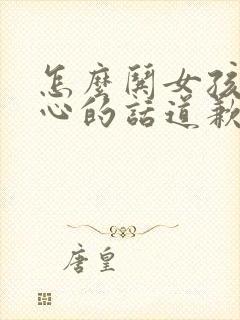 怎麼鬨女孩
心的話道歉
唐皇